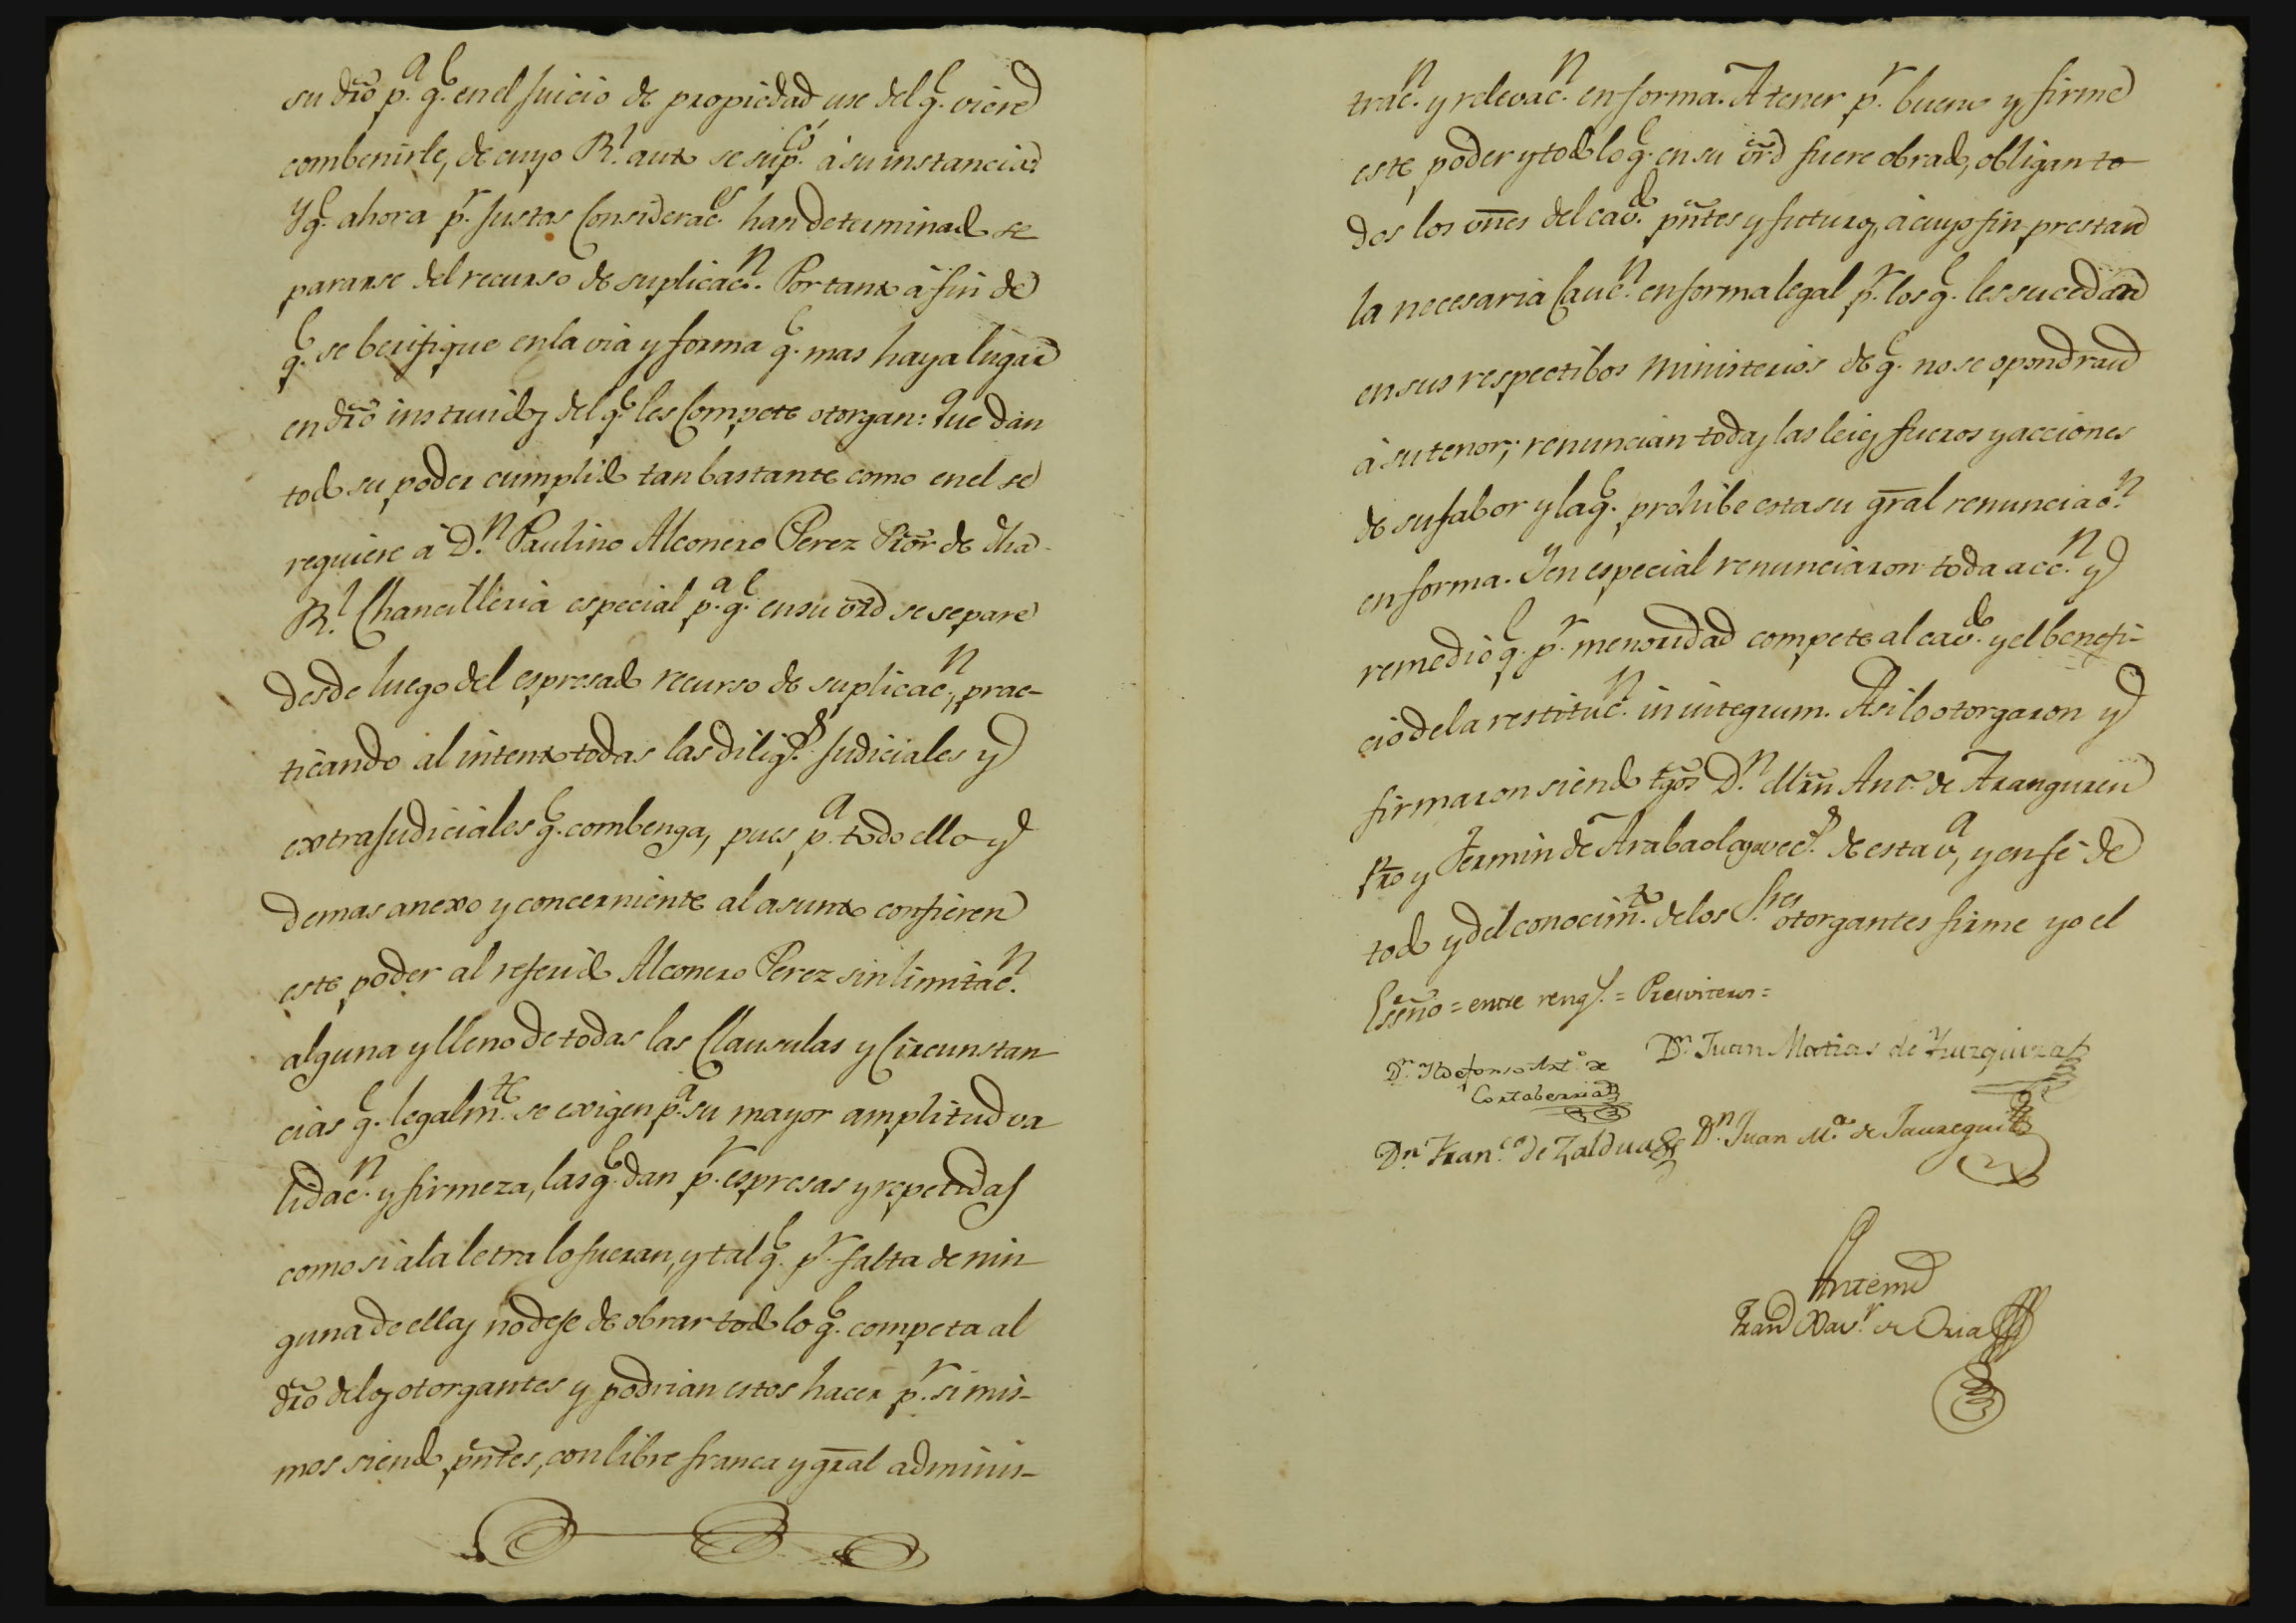 su dro p.a q.e en el Juicio de propiedad use del q.e viere
combenirle, de cuyo R.l auto se sup.có à su instancia:
Y q.e ahora p.r Justas Considerac.es han determinado se
pararse del recurso de suplicac.n Portanto à fin de
q.e se berifique en la via y forma q.e mas haya lugar
en dro instruidos del q.e les Compete otorgan: Que dan
todo su poder cumplido tan bastante como en el se
requiere à D.n Paulino Alconero Perez Pror de dha
R.l Chancilleria especial p.a q.e en su vrd se separe
desde luego del espresado recurso de suplicac.n, prac-
ticando al intento todas las dilig.s Judiciales y
extraJudiciales q.e combenga, pues p.a todo ello y
demas anexo y concerniente al asunto confieren
este poder al referido Alconero Perez sin limitac.n
alguna y lleno de todas las Clausulas y Circunstan
cias q.e legalm.te se exigen p.a su mayor amplitud va
lidac.n y firmeza, las q.e dan p.r espresas y repetidas
como si ala letra lo fueran, y tal q.e p.r falta de nin
guna de ellas no deje de obrar todo lo q.e competa al
dro delos otorgantes y podrian estos hacer p.r si mis-
mos siendo pntes, con libre franca y gral adminis-
trac.n y relevac.n en forma. A tener p.r bueno y firme
este poder y todo lo q.e en su vrd fuere obrado, obligan to
dos los vnes del cav.do pntes y futuros, à cuyo fin prestan
la necesaria Cauc.n en forma legal p.r los q.e les sucedan
en sus respectibos ministerios de q.e no se opondran
à su tenor; renuncian todas las leies fueros y acciones
de su fabor y la q.e prohibe esta su gral renunciac.n
en forma. Y en especial renunciaron toda acc.n y
remedio q.e p.r menoridad compete al cav.do y el benefi-
cio de la restituc.n in integrum. Asi lo otorgaron y
firmaron siendo tgos D.n Mrn Ant.o de Aranguren
Pro y Fermin de Arabaolaza vec.s de esta v.a, y en fé de
todo y del conocim.to delos S.res otorgantes firme yo el
Essno = entre reng.s = Presviteros =
D.n Ildefonso Ant.o de
Cortaberria
D.n Juan Matias de Yurzquiza
Dn Fran.co de Zaldua
D.n Juan M.a de Jauregui
Antemi
Fran Xav.r de Oria